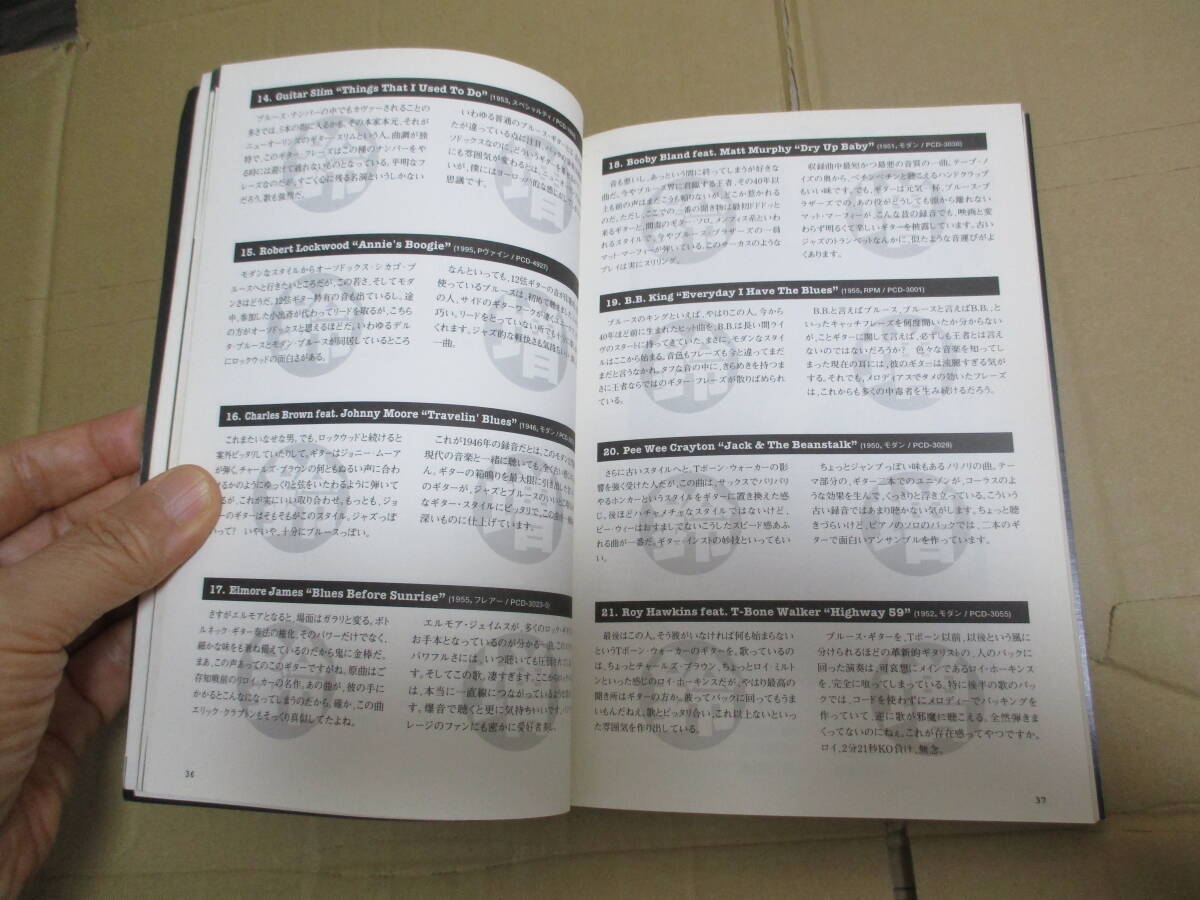 14. Guitar Slim “Things That I Used To Do” (1953, スペシャルティ / PCD-
ブルース・ナンバーの中でもカヴァーされることの
多さでは、5本の指に入るかも。その本家本元、それが
ニューオーリンズのギター・スリムという人。曲調が独
特で、このギター・フレーズはこの種のナンバーをや
る時には避けて通れないものとなっている。平明なフ
レーズなのだが、すごく心に残る名演というしかない
だろう。歌も強烈だ。
いわゆる普通のブルース・ギターと
たが違っている点に注目。
ドックスなのに、どういうギターを
にも雰囲気が変わるとは。ニューオ
いが、僕にはヨーロッパ的な感じが
思議です。
15. Robert Lockwood “Annie's Boogie” (1995, Pヴァイン / PCD-4927)
モダンなスタイルからオーソドックス・シカゴ・ブ
ルースへと行きたいところだが、この若さ、そしてモダ
ンさはどうだ。12弦ギター特有の音も出ているし。途
中、参加した小出斎が代わってリードを取るが、こちら
の方がオーソドックスと思えるほどだ。いわゆるデル
タ・ブルースとモダン・ブルースが同居しているところ
にロックウッドの面白さがある。
なんといっても、12弦ギターの音が
使っているブルースは、初めて聴きました
の人、サイドのギターワークが凄く
巧い。リードをとっていない所でも
くれます。ジャズ的な軽快さも気持ちいい
一曲。
16. Charles Brown feat. Johnny Moore “Travelin' Blues” (1946, モダン / PCD-
これまたいなせな男。でも、ロックウッドと続けると
案外ピッタリしていたりして。ギターはジョニー・ムーア
が弾く。チャールズ・ブラウンの何ともぬるい声に合わ
せるかのようにゆっくりと弦をいたわるように弾いて
るが、これが実にいい取り合わせ。もっとも、ジョ
ーのギターはそもそもがこのスタイル。ジャズっぽ
いって? いやいや、十分にブルースっぽい。
これが1946年の録音だとは。このモダン
現代の音楽と一緒に聴いても、全く古い感じ
ん。ギターの箱鳴りを最大限に引き出した
のギターが、ジャズとブルースのいいとこ
なギター・スタイルにピッタリで、この曲を一
深いものに仕上げています。
17. Elmore James “Blues Before Sunrise” (1955, フレアー / PCD-3023-5)
さすがエルモアとなると、場面はガラリと変る。ボト
ルネック・ギター奏法の権化。そのパワーだけでなく、
細かな味をも兼ね備えているのだから鬼に金棒だ。
まあ、この声あってのこのギターですがね。原曲はご
存知戦前のリロイ・カーの名作。あの曲が、彼の手に
かかるとこんなになってしまうのだから。確か、この曲
エリック・クラプトンもそっくり真似してたよね。
エルモア・ジェイムスが、多くのロック・ギ
お手本となっているのが分かる一曲。この
パワフルさには、いつ聴いても圧倒され
そしてこの歌。凄すぎます。ここから
は、本当に一直線につながっているような
す。爆音で聴くと更に気持ちいいです。
レージのファンにも密かに愛好者多し。
36
18. Booby Bland feat. Matt Murphy “Dry Up Baby” (1951, モダン / PCD-3036)
音も悪いし、あっという間に終ってしまうが好きな
曲だ。今やブルース界に君臨する王者、その40年以
上も前の声はまだこうも頼りないが、どこか惹かれる
のだ。ただし、ここでの一番の聞き物は最初ドドドッと
来るギターと、間奏のギター・ソロ。メンフィス系といわ
れるスタイルで、今やブルース・ブラザーズの一員
マット・マーフィーが弾いている。このサーカスのような
プレイは実にスリリング。
収録曲中最短かつ最悪の音質の一曲。テープ・ノ
イズの奥から、ペチンペチンと聴こえるハンドクラップ
もいい味です。でも、ギターは元気一杯。ブルース・ブ
ラザーズでの、あの役がどうしても頭から離れない
マット・マーフィーが、こんな昔の録音でも、映画と変
わらず明るくて楽しいギターを披露しています。古い
ジャズのトランペットなんかに、似たような音運びがよ
くあります。
19. B.B. King “Everyday I Have The Blues” (1955, RPM / PCD-3001)
ブルースのキングといえば、やはりこの人。今から
40年ほど前に生まれたヒット曲を、B.B.は長い間ライ
ヴのスタートに持ってきていた。まさに、モダンなスタイ
ルはここから始まる。音色もフレーズも今と違ってまだ
まだと言うなかれ。タフな音の中に、きらめきを持つま
さに王者ならではのギター・フレーズが散りばめられ
ている。
B.B.と言えばブルース、ブルースと言えばB.B.、と
いったキャッチフレーズを何度聞いたか分からない
が、ことギターに関して言えば、必ずしも王者とは言え
ないのではないだろうか? 色々な音楽を知ってし
まった現在の耳には、彼のギターは流麗すぎる気が
する。それでも、メロディアスでタメの効いたフレーズ
は、これからも多くの中毒者を生み続けるだろう。
20. Pee Wee Crayton “Jack & The Beanstalk” (1950, モダン / PCD-3028)
さらに古いスタイルへと。Tボーン・ウォーカーの影
響を強く受けた人だが、この曲は、サックスでバリバリ
やるホンカーというスタイルをギターに置き換えた感
じ。後ほどハチャメチャなスタイルではないけど、
ピー・ウィーはおすましでないこうしたスピード感あふ
れる曲が一番だ。ギター・インストの妙技といってもい
い。
ちょっとジャンプっぽい味もあるノリノリの曲。テー
マ部分の、ギター二本でのユニゾンが、コーラスのよう
な効果を生んで、くっきりと浮き立っている。こういう
古い録音ではあまり聴かない気がします。ちょっと聴
きづらいけど、ピアノのソロのバックでは、二本のギ
ターで面白いアンサンブルを作っています。
21. Roy Hawkins feat. T-Bone Walker “Highway 59” (1952, モダン / PCD-3055)
最後はこの人、そう彼がいなければ何も始まらな
いというTボーン・ウォーカーのギターを。歌っているの
は、ちょっとチャールズ・ブラウン、ちょっとロイ・ミルト
ンといった感じのロイ・ホーキンスだが、やはり最高の
聞き所はギターの方か。彼ってバックに回ってもうま
いもんだねぇ。歌とピッタリ合い、これ以上ないといっ
た雰囲気を作り出している。
ブルース・ギターを、Tボーン以前、以後という風に
分けられるほどの革新的ギタリストの、人のバックに
回った演奏は、可哀想にメインであるロイ・ホーキンス
を、完全に喰ってしまっている。特に後半の歌のバッ
クでは、コードを使わずにメロディーでバッキングを
作っていて、逆に歌が邪魔に聴こえる。全然弾きま
くってないのにねぇ。これが存在感ってやつですか。
ロイ、2分21秒KO負け。無念。
37